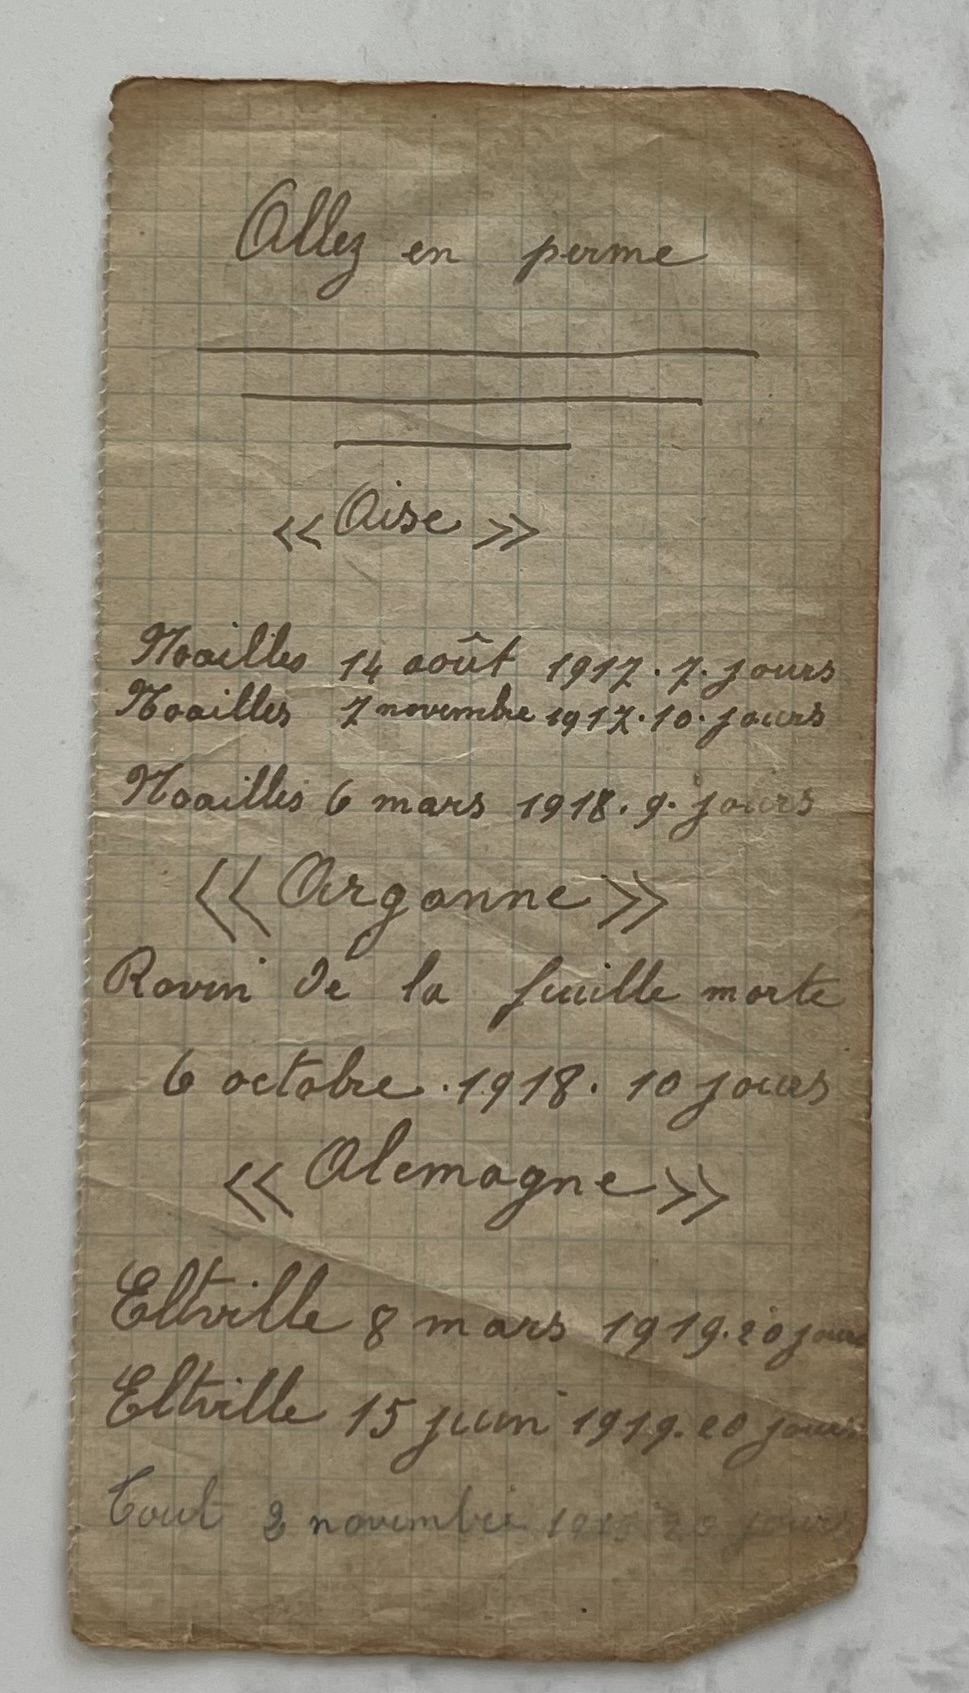 Allez en perme
<< Oise >>
Noailles 14 août 1917. 7. jours
Noailles 7 novembre 1917. 10. jours
Noailles 6 mars 1918. 9. jours
<< Argonne >>
Ravin de la fuille morte
6 octobre . 1918. 10 jours
<< Alemagne >>
Eltville 8 mars 1919. 20 jours
Eltville 15 juin 1919. 20 jours
Toul 2 novembre 20 jours